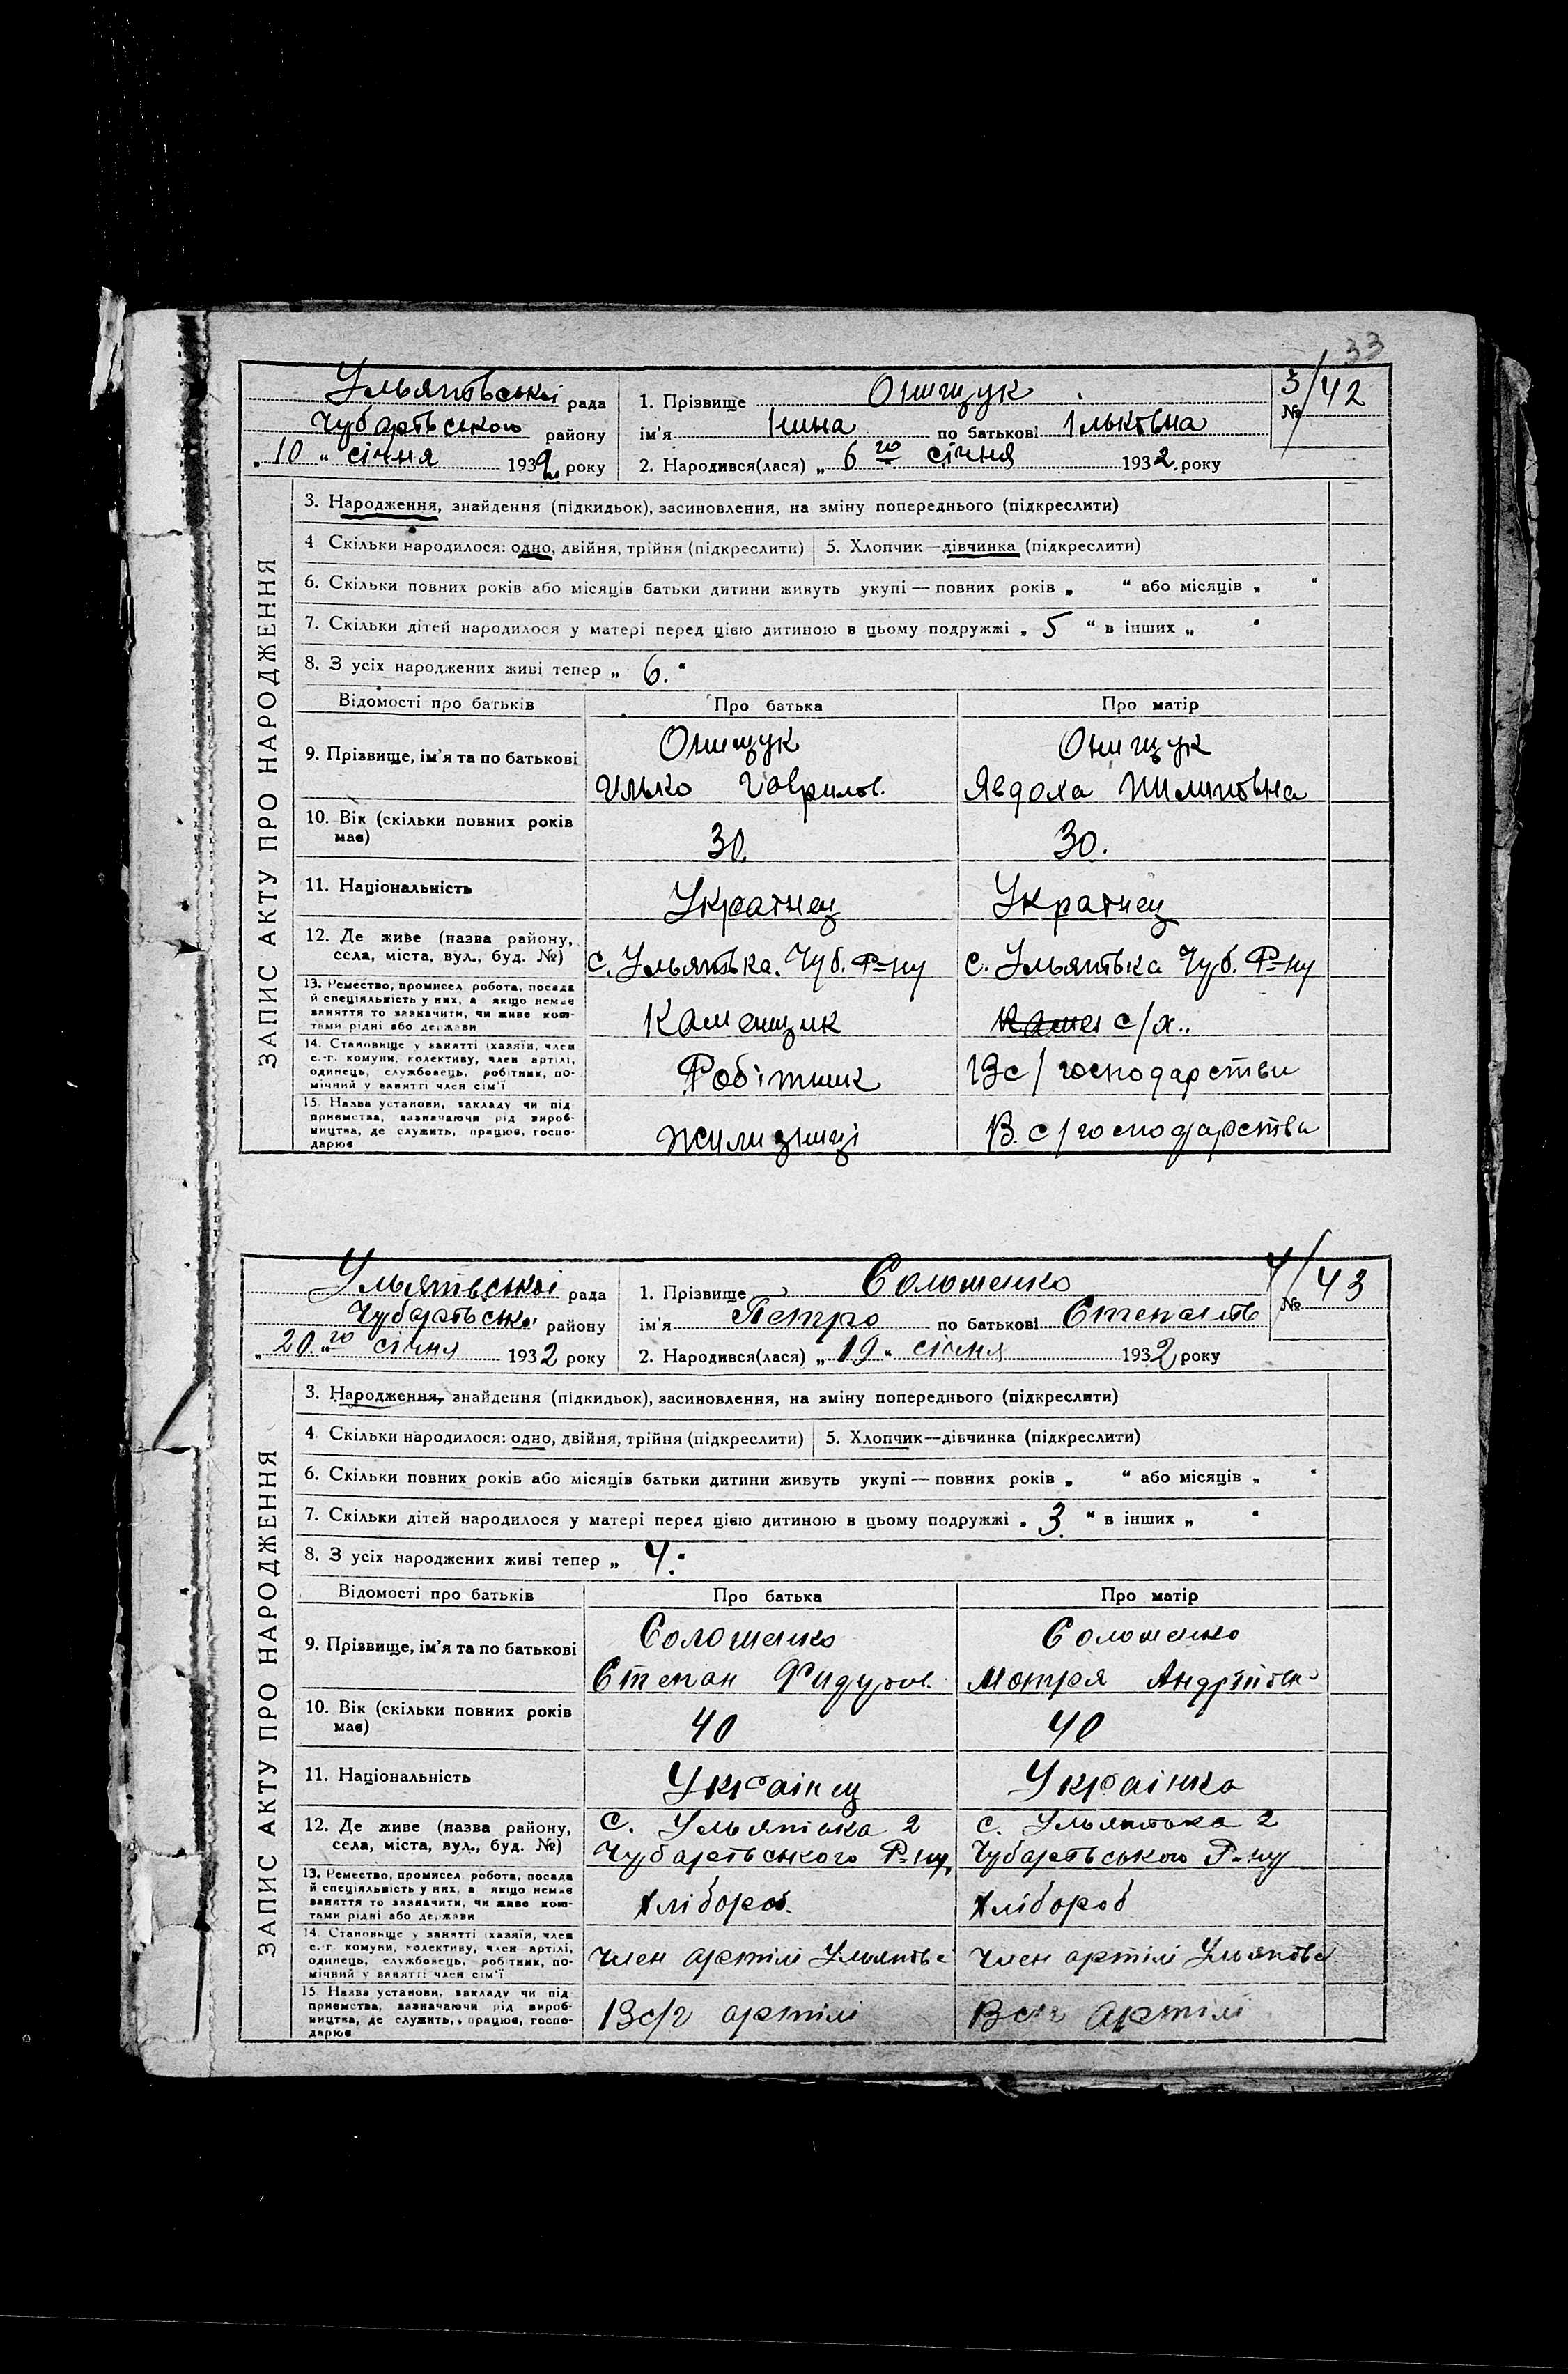 33
Ульянівської рада
Чубарівського району
„ 10 “ січня 1932 року
1. Прізвище Онищук
ім'я Нина по батькові Ільківна
2. Народився(лася) „ 6 го січня 1932 року
3/42
№
ЗАПИС АКТУ ПРО НАРОДЖЕННЯ
3. Народження, знайдення (підкидьок), засиновлення, на зміну попереднього (підкреслити)
4 Скільки народилося: одно, двійня, трійня (підкреслити) 5. Хлопчик—дівчинка (підкреслити)
6. Скільки повних років або місяців батьки дитини живуть укупі — повних років „ “ або місяців „ “
7. Скільки дітей народилося у матері перед цією дитиною в цьому подружжі „ 5 “ в інших „ “
8. З усіх народжених живі тепер „ 6. “
Відомості про батьків Про батька Про матір
9. Прізвище, ім'я та по батькові
Онищук
Илько Гаврилов.
Онищук
Явдоха Пилиповна
10. Вік (скільки повних років
має)
30.
30.
11. Національність
Українец
Українец
12. Де живе (назва району,
села, міста, вул., буд. №)
с. Ульянівка. Чуб. Р-ну
с. Ульянівка Чуб. Р-ну
13. Ремество, промисел робота, посада
й спеціяльність у них, а якщо немає
заняття то зазначити, чи живе кош-
тами рідні або держави
Каменщик
с/х..
14. Становище у занятті (хазяїн, член
с.-г. комуни, колективу, член артілі,
одинець, службовець, робітник, по-
мічний у занятті член сім'ї
Робітник
В с/господарстви
15. Назва установи, закладу чи під
приємства, зазначаючи рід вироб-
ництва, де служить, працює, госпо-
дарює
Жилизниці
В. с/господарства
Ульянівської рада
Чубарівської району
„ 20 “ го січня 1932 року
1. Прізвище Солошенко
ім'я Петро по батькові Степанів
2. Народився(лася) „ 19 “ січня 1932 року
4/43
№
ЗАПИС АКТУ ПРО НАРОДЖЕННЯ
3. Народження, знайдення (підкидьок), засиновлення, на зміну попереднього (підкреслити)
4. Скільки народилося: одно, двійня, трійня (підкреслити) 5. Хлопчик—дівчинка (підкреслити)
6. Скільки повних років або місяців батьки дитини живуть укупі — повних років „ “ або місяців „ “
7. Скільки дітей народилося у матері перед цією дитиною в цьому подружжі „ 3. “ в інших „ “
8. З усіх народжених живі тепер „ 4. “
Відомості про батьків Про батька Про матір
9. Прізвище, ім'я та по батькові
Солошенко
Степан Фидуров.
Солошенко
Мотря Андріївн
10. Вік (скільки повних років
має)
40
40
11. Національність
Українец
Українка
12. Де живе (назва району,
села, міста, вул., буд. №)
с. Ульянівка 2
Чубарівського Р-ну,
с. Ульянівка 2
Чубарівського Р-ну
13. Ремество, промисел робота, посада
й спеціяльність у них, а якщо немає
заняття то зазначити, чи живе кош-
тами рідні або держави
Хлібороб.
Хлібороб
14. Становище у занятті (хазяїн, член
с.-г. комуни, колективу, член артілі,
одинець, службовець, робітник, по-
мічний у занятті член сім'ї
Член артілі Ульянівс
Член артілі Ульянівс
15. Назва установи, закладу чи під
приємства, зазначаючи рід вироб-
ництва, де служить, працює, госпо-
дарює
В с/г артілі
В с/г артілі